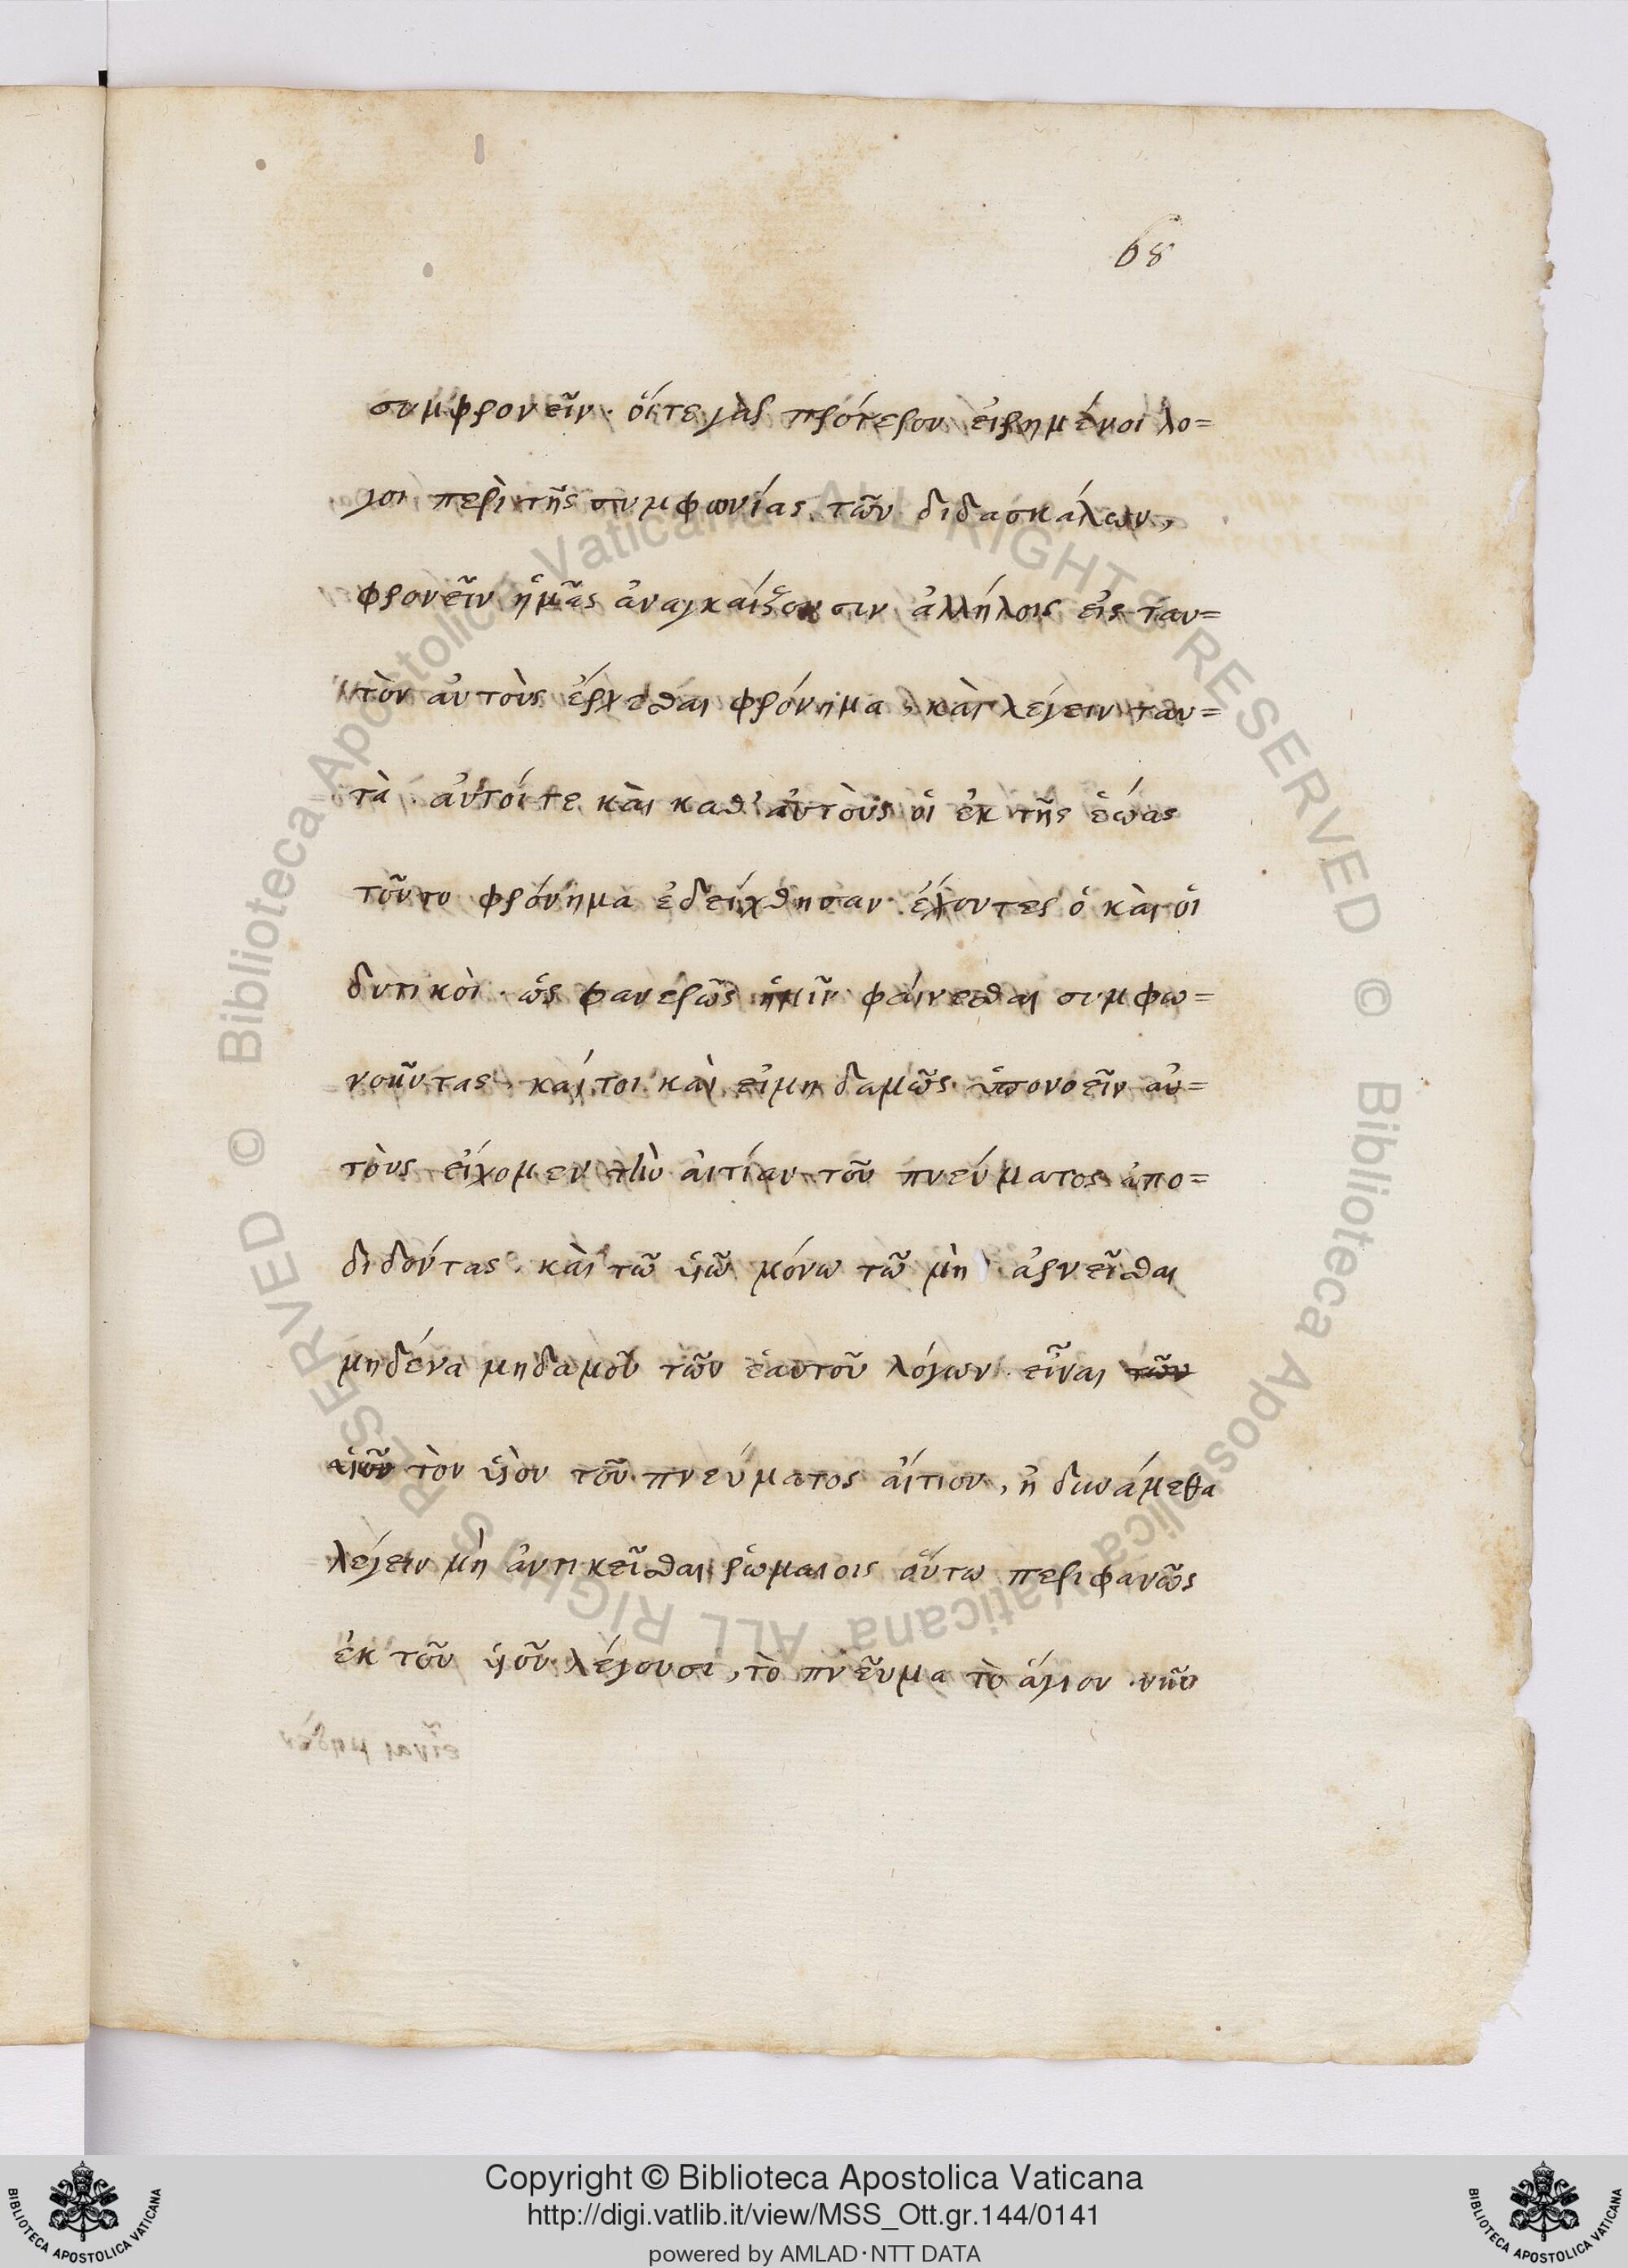 68
συμφρονεῖν· ὅιτε γὰρ πρότερον ἐιρημένοι λο=
γοι περὶ τῆς συμφωνίας τῶν διδασκάλων,
φρονεῖν ἡμᾶς ἀναγκαίζουσιν ἀλλήλοις εἰς ταυ=
τὸν αὐτοὺς ἔρχεσθαι φρόνημα, καὶ λέγειν ταυ=
τὰ· αὐτοί τε καὶ καθ' αὐτοὺς οἱ ἐκ τῆς ἑώας
τοῦτο φρόνημα ἐδείχθησαν ἔχοντες ὁ καὶ οἱ
δυτικοὶ· ὡς φανερῶς ἡμῖν φαίνεσθαι συμφω=
νοῦντας· καίτοι καὶ εἰ μηδαμῶς ὑπονοεῖν αὐ=
τοὺς εἴχομεν τὴν ἀιτίαν τοῦ πνεύματος ἀπο=
διδόντας· καὶ τῶ ὑιῶ μόνω τῶ μὴ ἀρνεῖσθαι
μηδένα μηδαμοῦ τῶν ἑαυτοῦ λόγων· εἶναι τῶν
ὑιοῦ τὸν ὑιὸν τοῦ πνεύματος ἀίτιον, ἢ δυνάμεθα
λέγειν μὴ ἀντικεῖσθαι ῥωμαιοις οὕτω περιφανῶς
ἐκ τοῦ ὑιοῦ λέγουσι, τὸ πνεῦμα τὸ ἅγιον· νῦν
Copyright © Biblioteca Apostolica Vaticana
http://digi.vatlib.it/view/MSS_Ott.gr.144/0141
powered by AMLAD·NTT DATA
BIBLIOTECA APOSTOLICA VATICANA
BIBLIOTECA APOSTOLICA VATICANA
© Biblioteca Apostolica Vaticana ALL RIGHTS RESERVED © Biblioteca Apostolica Vaticana ALL RIGHTS RESERVED